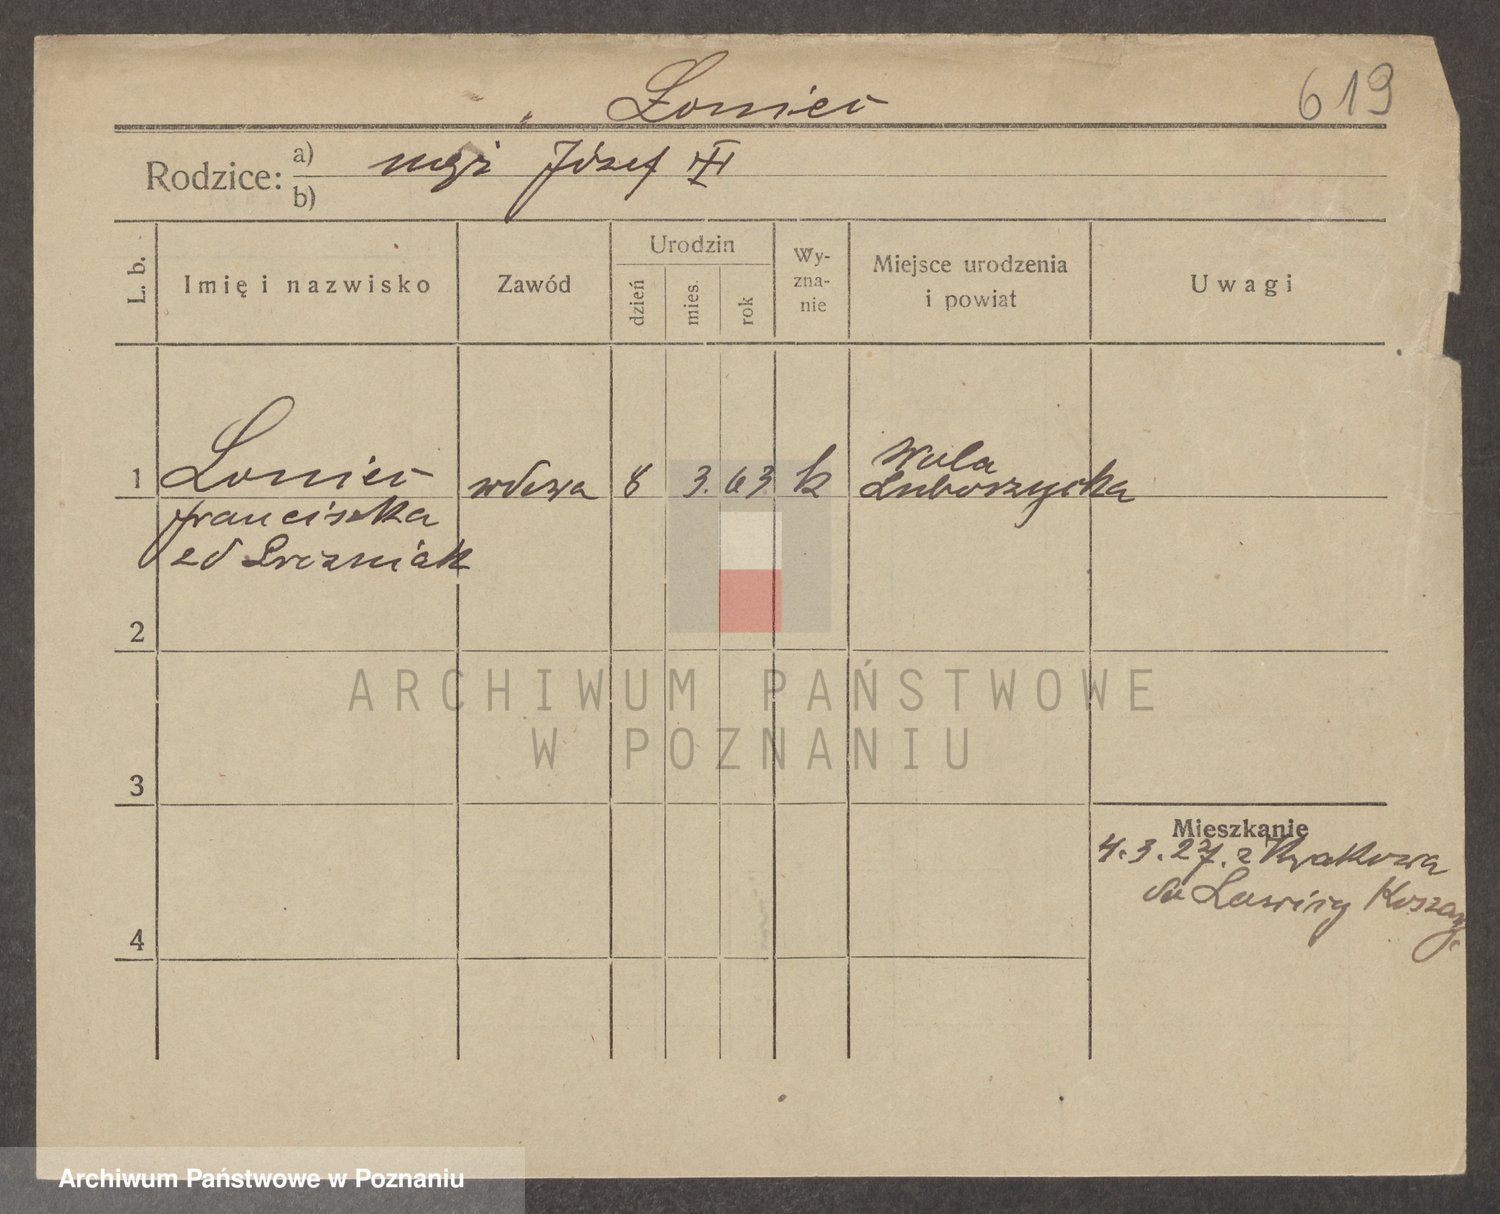 Łomiec
619
Rodzice: a) mąż Józef
b)
L. b.
Imię i nazwisko
Zawód
Urodzin
dzień
mies.
rok
Wy-
zna-
nie
Miejsce urodzenia
i powiat
Uwagi
1
Łomiec
Franciszka
zd
wdowa
8
3.
63
k
Wola
Luborzycka
2
3
4
Mieszkanie
4.3.27. z Krakowa
do
ARCHIWUM PAŃSTWOWE
W POZNANIU
Archiwum Państwowe w Poznaniu